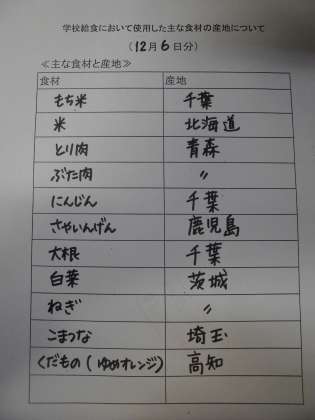 学校給食において使用した主な食材の産地について
(12月6日分)
≪主な食材と産地≫
食材 産地
もち米 千葉
米 北海道
とり肉 青森
ぶた肉 〃
にんじん 千葉
さやいんげん 鹿児島
大根 千葉
白菜 茨城
ねぎ 〃
こまつな 埼玉
くだもの(ゆめオレンジ) 高知